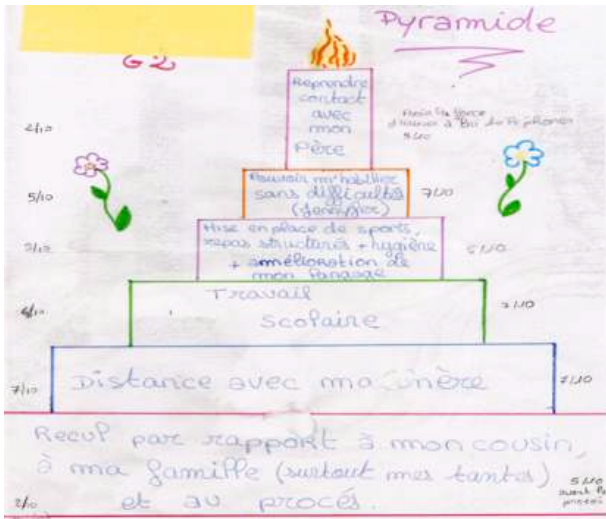 Pyramide
G2
Reprendre
contact
avec
mon
Père
2/10
5/10
Pouvoir m'habiller
sans difficultés
(Jennyfer)
7/10
5/10
Mise en place de sports,
repas structurés + hygiène
+ amélioration de
mon langage
5/10
Travail
scolaire
7/10
Distance avec ma mère
7/10
7/10
Recul par rapport à mon cousin,
à ma famille (surtout mes tantes)
et au procés.
2/10
5/10
avant le
procès